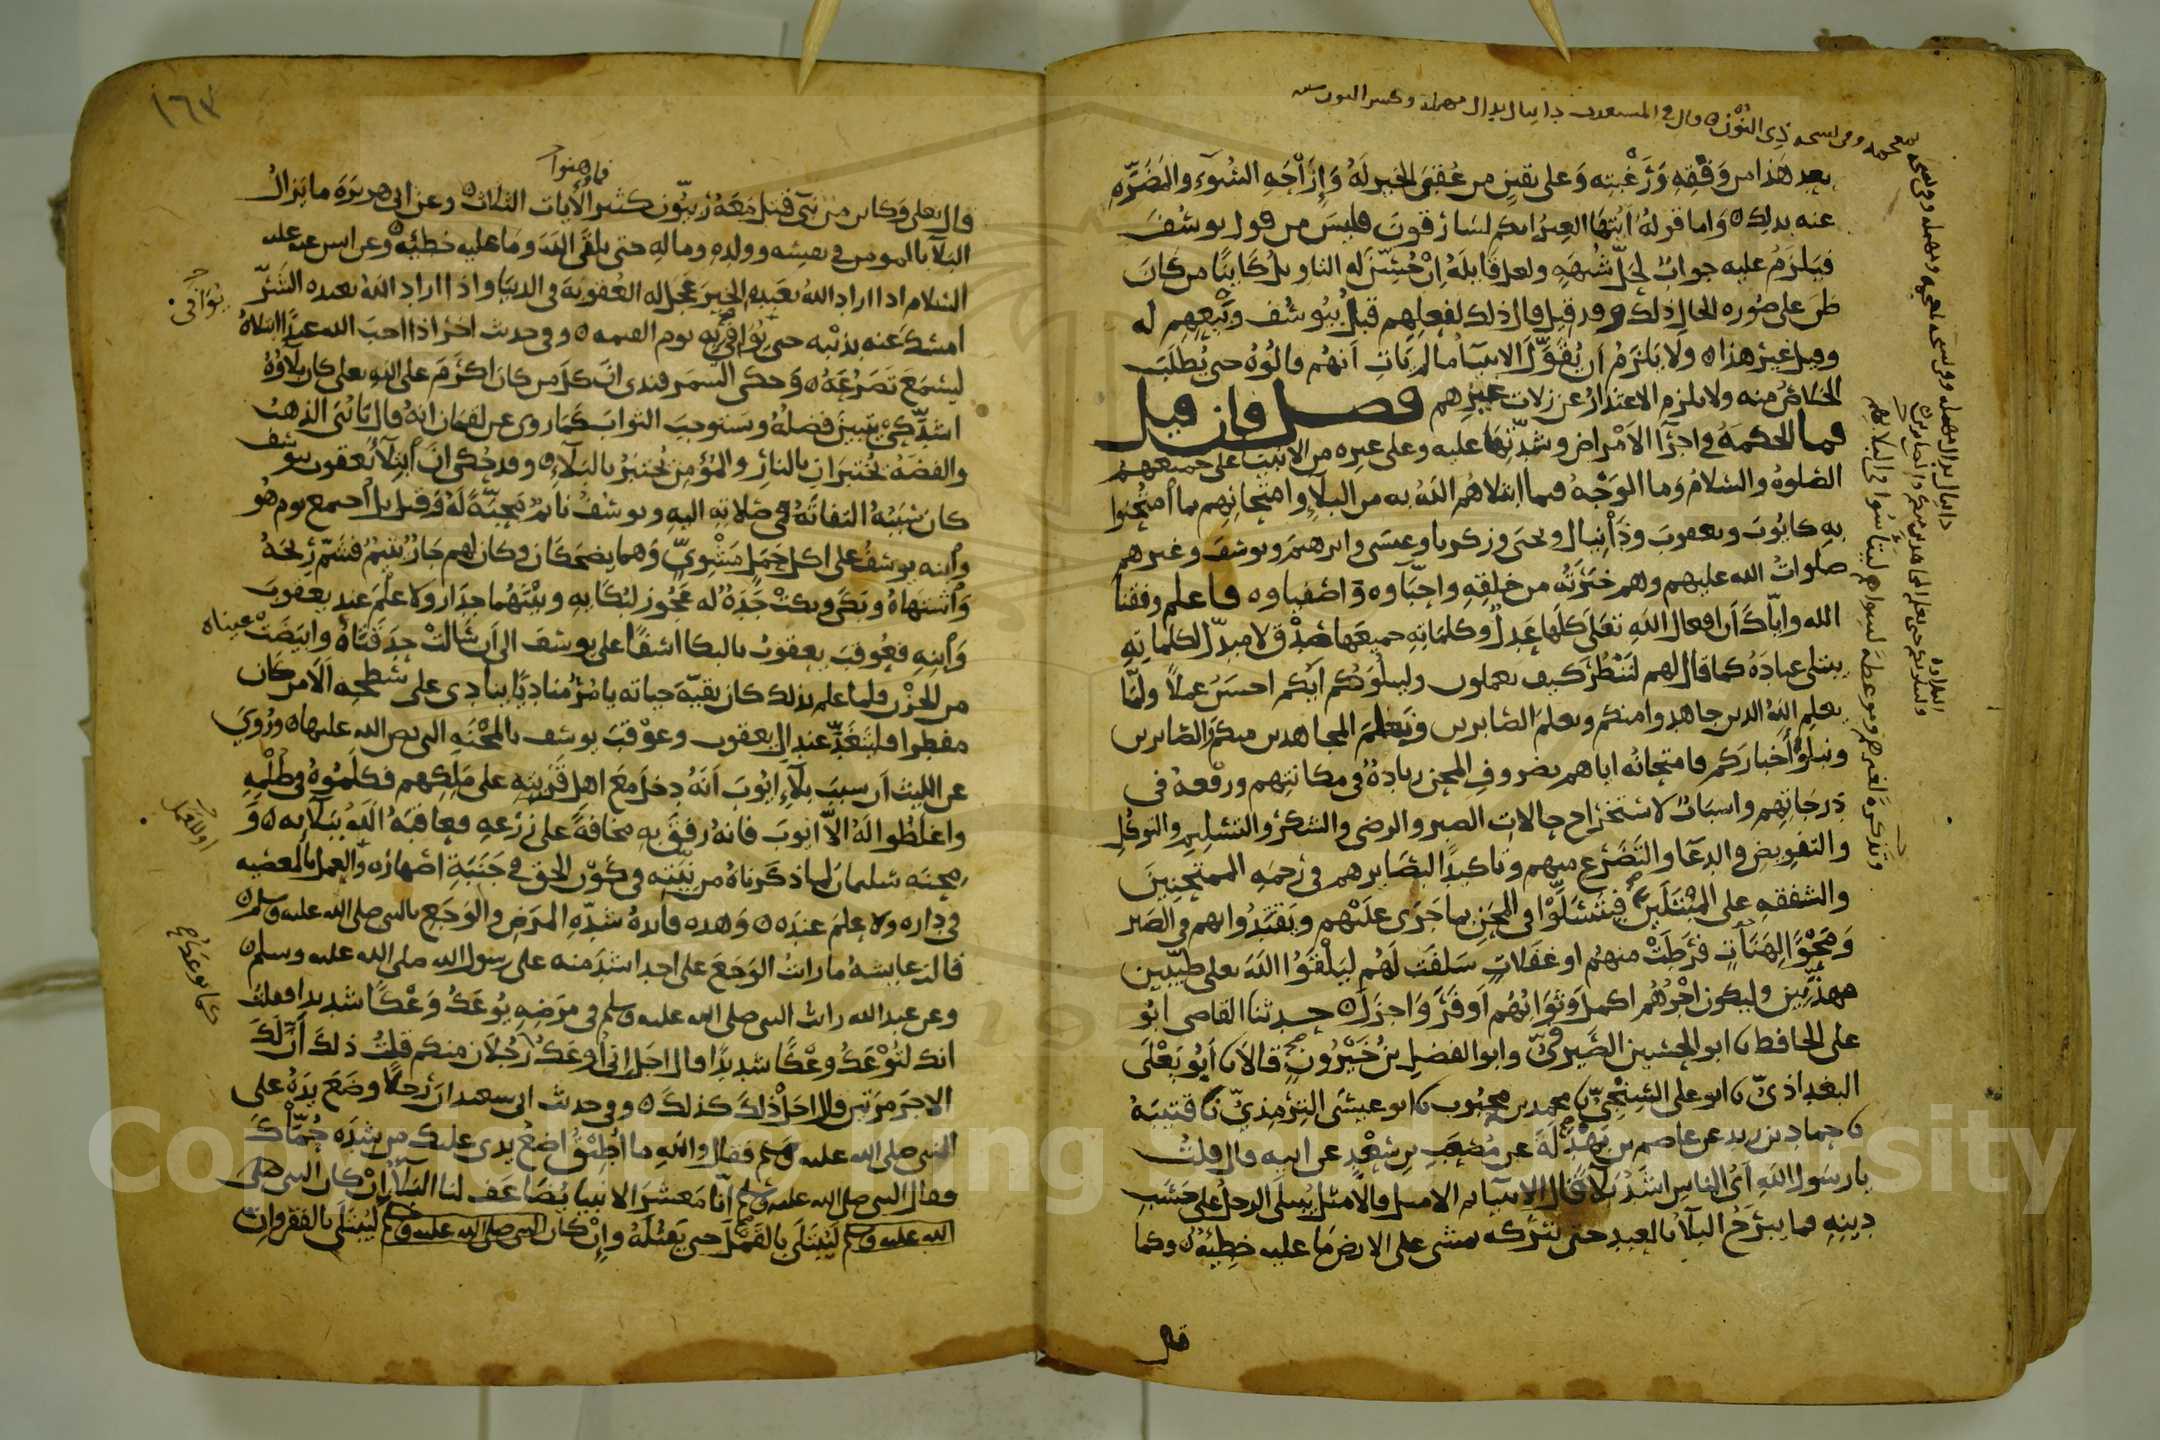 بعد هذا من وفقه ورغبته وعلى يقين من عقبى الخير له وازاحه السوء والمضره
عنه بذلك واما قوله ايتها العير انكم لسارقون فليس من قول يوسف
فيلزم عليه جواب لحل شبهه ولعل قايله ان حسن له التاويل كاينا من كان
ظن على صوره الحال ذلك وقد قيل قال ذلك لفعلهم قبل بيوسف وبيعهم له
وقيل غير هذا ولا يلزم ان نقول الانبيا ما لم يات انهم قالوه حتى يطلب
الخلاص منه ولا يلزم الاعتذار عن زلات غيرهم فصل فان قيل
فما الحكمه في اجرا الامراض وشدتها عليه وعلى غيره من الانبيا على جميعهم
الصلوة والسلام وما الوجه فيما ابتلاهم الله به من البلاء وامتحانهم بما امتحنوا
به كايوب ويعقوب ودانيال ويحيى وزكريا وعيسى وابرهيم ويوسف وغيرهم
صلوات الله عليهم وهم خيرته من خلقه واحباوه واصفياوه فاعلم وفقنا
الله واياك ان افعال الله تعلى كلها عدل وكلماته جميعها صدق لا مبدل لكلماته
يبتلي عباده كما قال لهم لننظر كيف تعملون وليبلوكم ايكم احسن عملا ولما
يعلم الله الذين جاهدوا منكم ويعلم الصابرين ونعلم المجاهدين منكم والصابرين
ونبلو اخباركم فامتحانه اياهم بضروف المحن زيادة في مكانتهم ورفعة في
درجاتهم واسباب لاستخراج حالات الصبر والرضى والشكر والتسليم والتوكل
والتفويض والدعا والتضرع منهم وتاكيد لبصايرهم في رحمه الممتحنين
والشفقه على المبتلين فيتسلوا في المحن بما جرى عليهم ويقتدوا بهم في الصبر
ومحو لهنات فرطت منهم او غفلات سلفت لهم ليلقوا الله تعلى طيبين
مهذبين وليكون اجرهم اكمل وثوابهم اوفر واجزل حدثنا القاضي ابو
علي الحافظ ابو الحسين الصيرفي وابو الفضل بن خيرون قالا ابو يعلى
البغداذي ابو علي السنجي محمد بن محبوب ابو عيسى الترمذي قتيبه
حماد بن زيد عن عاصم بن بهدله عن مصعب بن سعد عن ابيه قال قلت
يا رسول الله اي الناس اشد بلا قال الانبيا ثم الامثل فالامثل يبتلى الرجل على حسب
دينه فما يبرح البلا بالعبد حتى يتركه يمشي على الارض ما عليه خطيئه وكما
قال
١٦٣
فما وهنوا
قال تعلى وكاين من نبي قتل معه ربيون كثير الايات الثلاث وعن ابي هريره ما يزال
البلا بالمومن في نفسه وولده وماله حتى يلقى الله وما عليه خطئه وعن انس عنه عليه
السلام اذا اراد الله بعبده الخير عجل له العقوبه في الدنيا واذا اراد الله بعبده الشر
امسك عنه بذنبه حتى يوافي به يوم القيمه وفي حديث اخر اذا احب الله عبدا ابتلاه
ليسمع تضرعه وحكى السمرقندي ان كل من كان اكرم على الله تعلى كان بلاوه
اشد كي يتبين فضله ويستوجب الثواب كما روى عن لقمان انه قال يا بني الذهب
والفضه يختبران بالنار والمؤمن يختبر بالبلاء وقد حكى ان ابتلا يعقوب بيوسف
كان سببه التفاته في صلاته اليه ويوسف نايم محبة له وقيل بل اجتمع يوم هو
وابنه يوسف على اكل حمل مشوي وهما يضحكان وكان لهم جار يتيم فشم ريحه
واشتهاه وبكى وبكت جدة له عجوز لبكايه وبينهما جدار ولا علم عند يعقوب
وابنه فعوقب يعقوب بالبكا اسفا على يوسف الى ان سالت حدقتاه وابيضت عيناه
من الحزن فلما علم بذلك كان بقية حياته يامر مناديا ينادي على سطحه الا من كان
مفطرا فليتغد عند ال يعقوب وعوقب يوسف بالمحنه التي نص الله عليها وروي
عن الليث ان سبب بلاء ايوب انه دخل مع اهل قريته على ملكهم فكلموه في ظلمه
واغلظوا له الا ايوب فانه رفق به مخافة على زرعه فعاقبه الله ببلايه و
محنه سليمان لما ذكرناه من نيته في كون الحق في جنبة اصهاره والعمل بالمعصيه
في داره ولا علم عنده وهذه فايدة شده المرض والوجع بالنبي صلى الله عليه وسلم
قالت عايشه ما رايت الوجع على احد اشد منه على رسول الله صلى الله عليه وسلم
وعن عبد الله رايت النبي صلى الله عليه وسلم في مرضه يوعك وعكا شديدا فقلت
انك لتوعك وعكا شديدا قال اجل اني اوعك رجلان منكم قلت ذلك ان لك
الاجر مرتين قال اجل ذلك كذلك وفي حديث ابي سعيد ان رجلا وضع يده على
النبي صلى الله عليه وسلم فقال والله ما اطيق اضع يدي عليك من شده حماك
فقال النبي صلى الله عليه وسلم انا معشر الانبيا يضاعف لنا البلا ان كان النبي صلى
الله عليه وسلم ليبتلى بالقمل حتى يقتله وان كان النبي صلى الله عليه وسلم ليبتلى بالفقر وان
يوافى
كما يوعك
Copyright © King Saud University